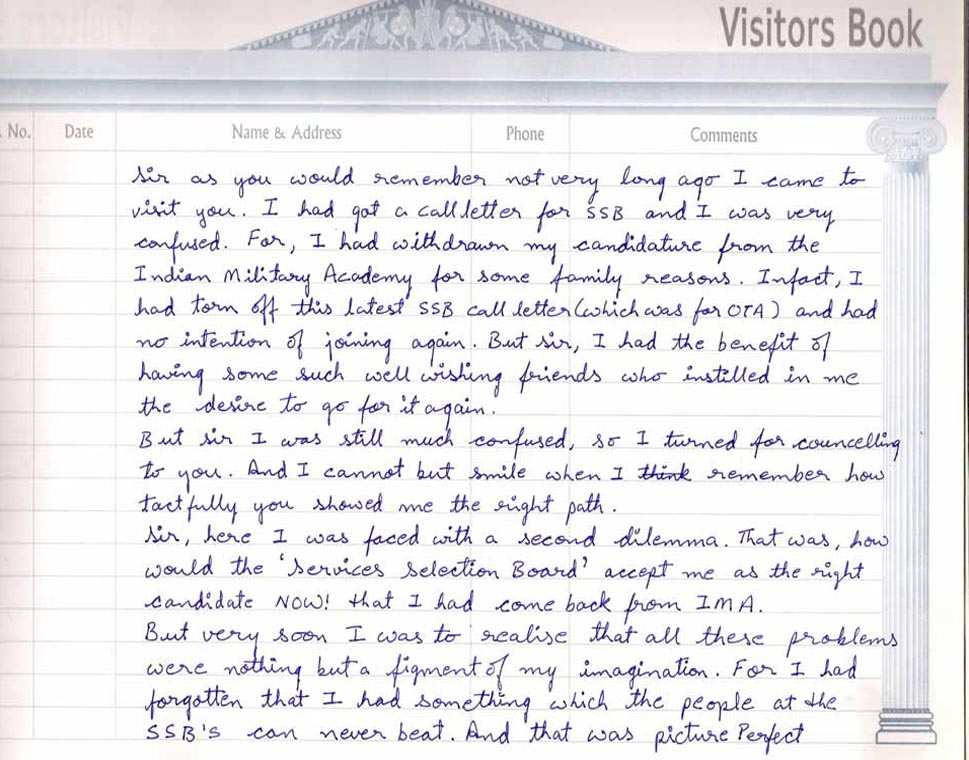 Visitors Book
No. Date Name & Address Phone Comments
Sir as you would remember not very long ago I came to
visit you. I had got a call letter for SSB and I was very
confused. For, I had withdrawn my candidature from the
Indian Military Academy for some family reasons. Infact, I
had torn off this latest SSB call letter (which was for OTA) and had
no intention of joining again. But sir, I had the benefit of
having some such well wishing friends who instilled in me
the desire to go for it again.
But sir I was still much confused, so I turned for councelling
to you. And I cannot but smile when I think remember how
tactfully you showed me the right path.
Sir, here I was faced with a second dilemma. That was, how
would the 'Services Selection Board' accept me as the right
candidate NOW! that I had come back from IMA.
But very soon I was to realise that all these problems
were nothing but a figment of my imagination. For I had
forgotten that I had something which the people at the
SSB'S can never beat. And that was picture Perfect